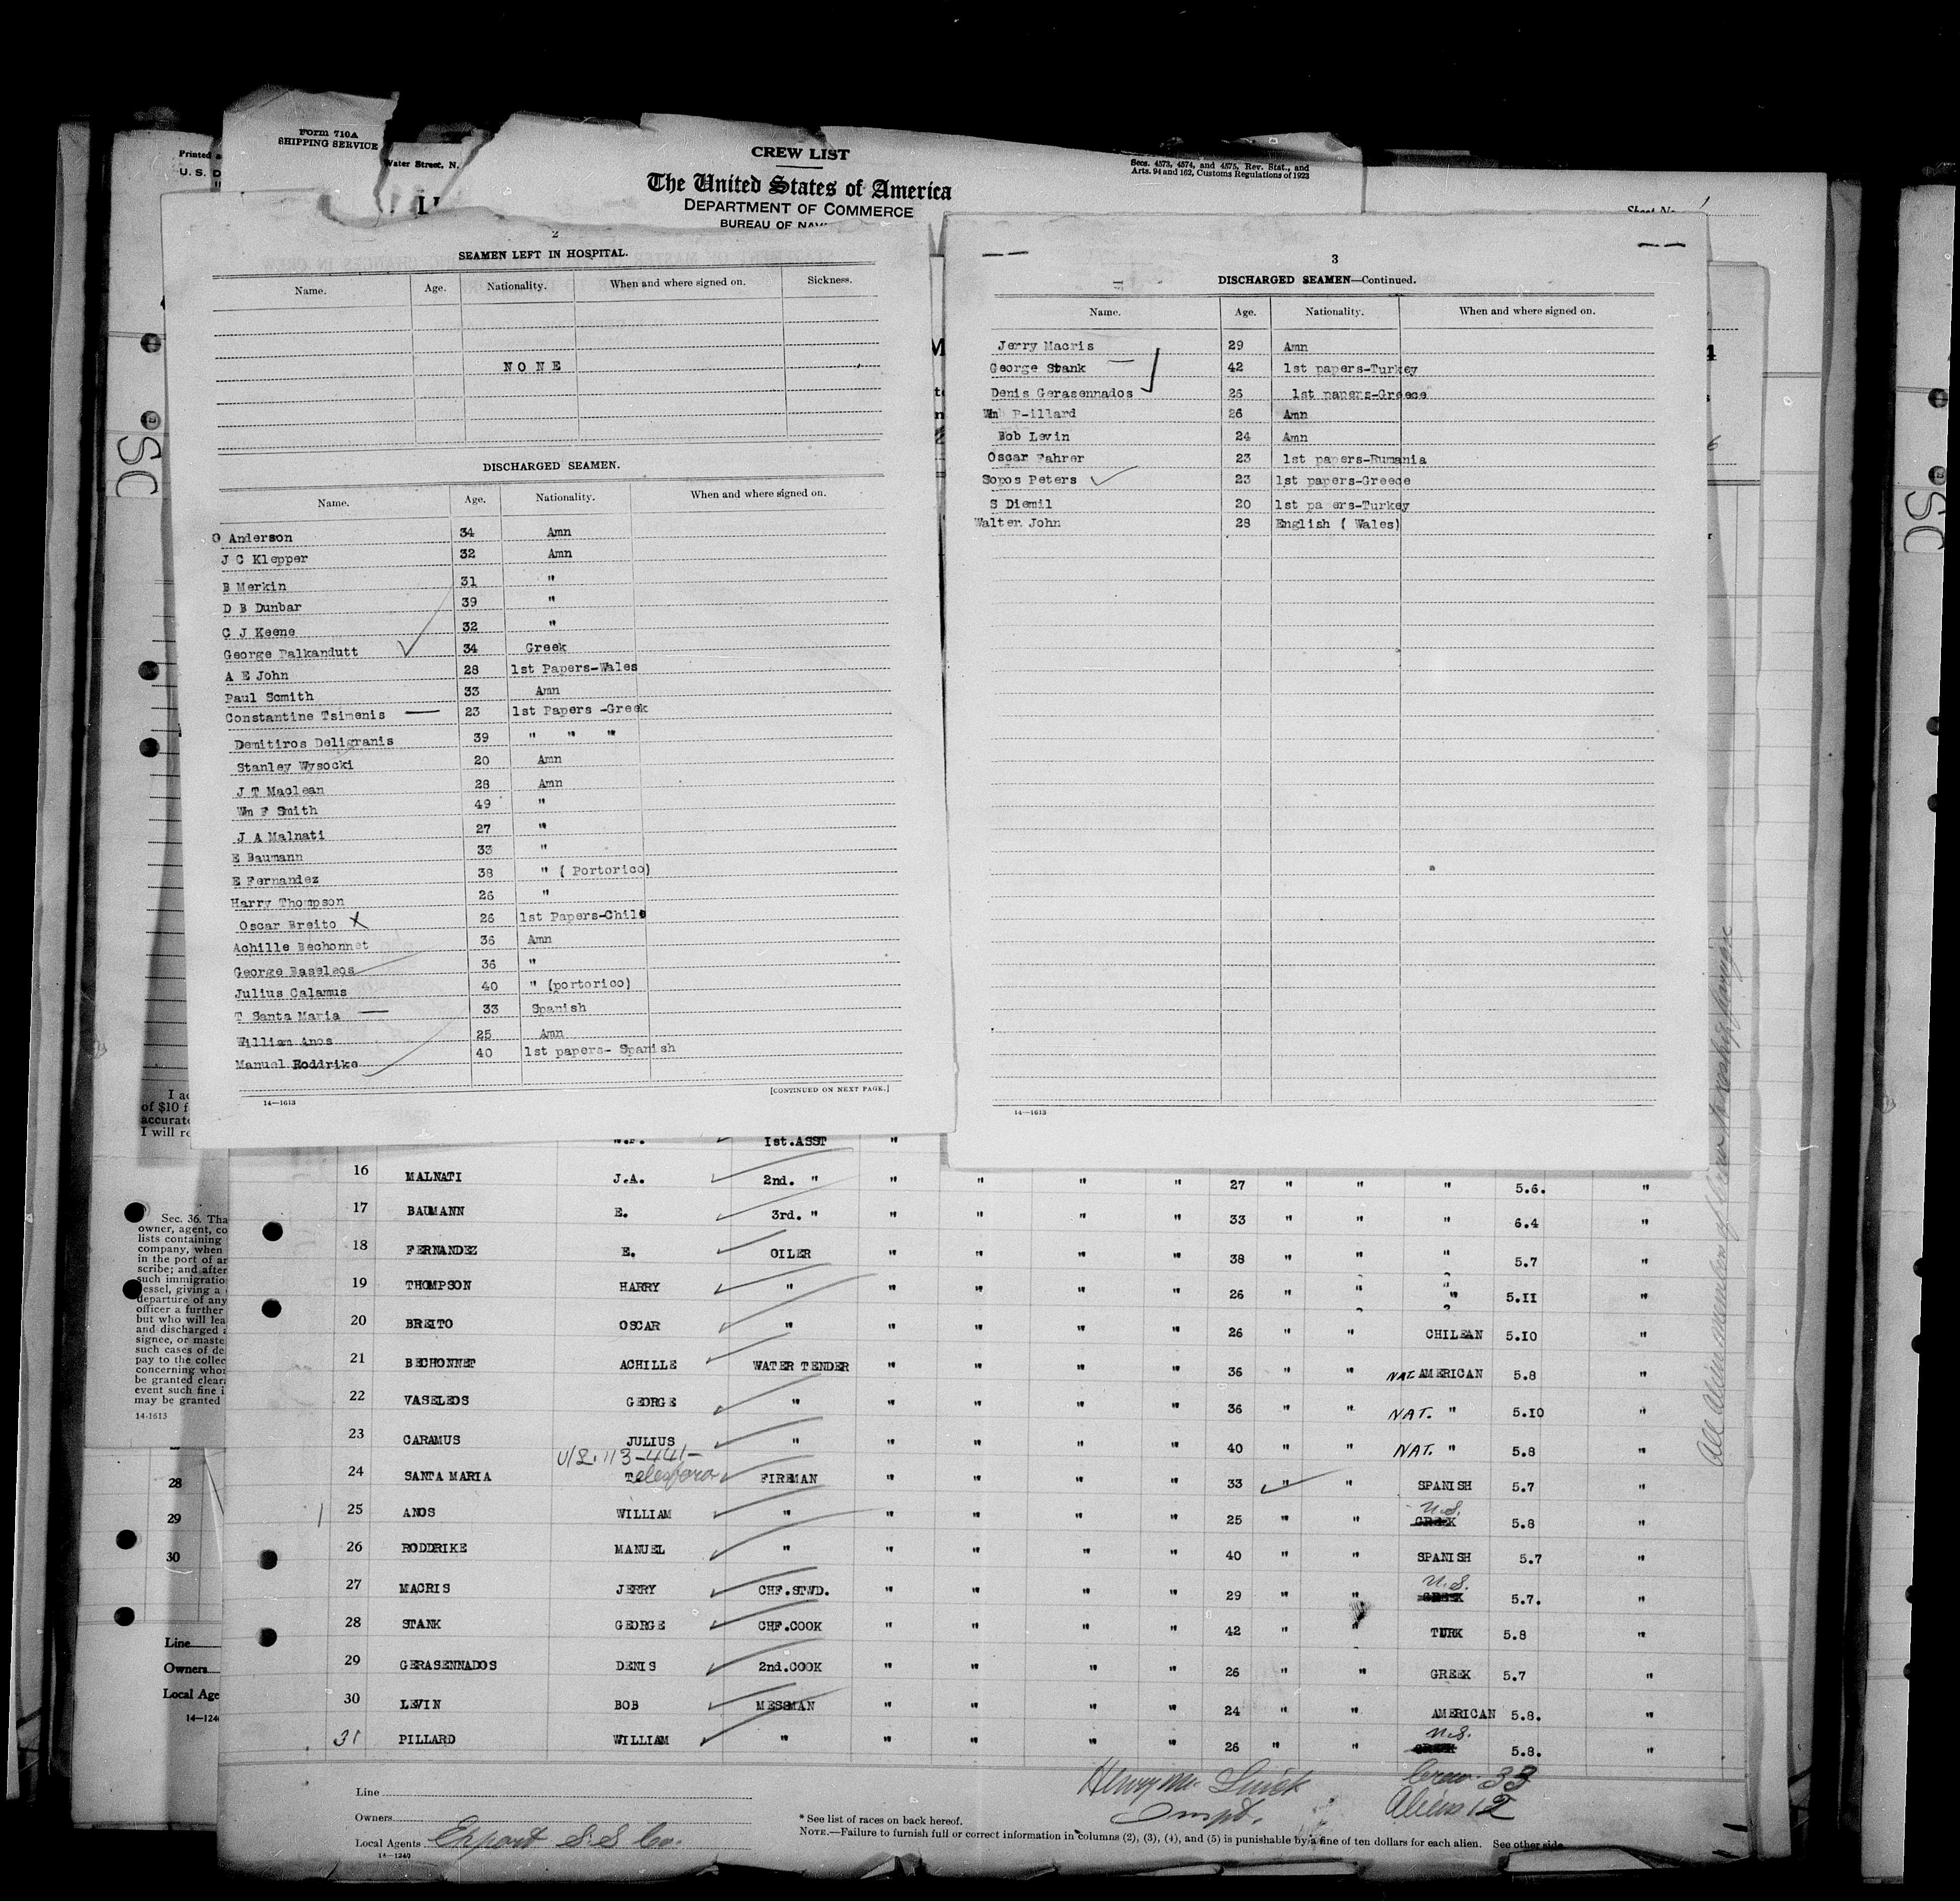 Form 710A
SHIPPING SERVICE
Water Street, N.
CREW LIST
The United States of America
DEPARTMENT OF COMMERCE
BUREAU OF NAV
Secs. 4573, 4574, and 4575, Rev. Stat., and
Arts. 94 and 162, Customs Regulations of 1923
Printed
U. S. D
2
SEAMEN LEFT IN HOSPITAL.
Name. Age. Nationality. When and where signed on. Sickness.
NONE
DISCHARGED SEAMEN.
Name. Age. Nationality. When and where signed on.
O Anderson 34 Amn
J C Klepper 32 Amn
B Merkin 31 "
D B Dunbar 39 "
C J Keene 32 "
George Palkandutt 34 Greek
A E John 28 1st Papers-Wales
Paul Scmith 33 Amn
Constantine Tsimenis 23 1st Papers -Greek
Demitiros Deligranis 39 " " "
Stanley Wysocki 20 Amn
J T Maclean 28 Amn
Wm F Smith 49 "
J A Malnati 27 "
E Baumann 33 "
E Fernandez 38 " ( Portorico)
Harry Thompson 26 "
Oscar Breito X 26 1st Papers-Chile
Achille Bechonnet 36 Amn
George Baseleos 36 "
Julius Calamus 40 " (portorico)
T Santa Maria 33 Spanish
William Anos 25 Amn
Manuel Roddrike 40 1st papers- Spanish
[CONTINUED ON NEXT PAGE.]
14—1613
3
DISCHARGED SEAMEN—Continued.
Name. Age. Nationality. When and where signed on.
Jerry Macris 29 Amn
George Stank 42 1st papers-Turkey
Denis Gerasennados 26 1st papers-Greece
Wm P-illard 26 Amn
Bob Levin 24 Amn
Oscar Fahrer 23 1st papers-Rumania
Sopos Peters 23 1st papers-Greece
S Diemil 20 1st papers-Turkey
Walter John 28 English ( Wales)
14—1613
SC
SC
of $10 f
accurate
I will re
Sec. 36. Tha
owner, agent, co
lists containing
company, when
in the port of ar
scribe; and after
such immigratio
vessel, giving a
departure of any
officer a further
but who will lea
and discharged a
signee, or maste
such cases of de
pay to the collec
concerning whom
be granted clear
event such fine i
may be granted
14-1613
28
29
30
Line
Owners
Local Age
14—124
1st.ASST "
16 MALNATI J.A. 2nd. " " " " " 27 " " " 5.6. "
17 BAUMANN E. 3rd. " " " " 33 " " " 6.4 "
18 FERNANDEZ E. OILER " " " " 38 " " " 5.7 "
19 THOMPSON HARRY " " " " " 26 " " " 5.11 "
20 BREITO OSCAR " " " " " 26 " " CHILEAN 5.10 "
21 BECHONNET ACHILLE WATER TENDER " " " " 36 " " NAT. AMERICAN 5.8 "
22 VASELEOS GEORGE " " " " " 36 " " NAT. " 5.10 "
23 CARAMUS JULIUS " " " " " 40 " " NAT. " 5.8 "
24 SANTA MARIA Telesfora FIREMAN " " " " 33 " " SPANISH 5.7 "
25 ANOS WILLIAM " " " " " 25 " " U.S. GREEK 5.8 "
26 RODDRIKE MANUEL " " " " " 40 " " SPANISH 5.7 "
27 MACRIS JERRY CHF.STWD. " " " " 29 " " U.S. GREEK 5.7. "
28 STANK GEORGE CHF.COOK " " " " 42 " " TURK 5.8 "
29 GERASENNADOS DENIS 2nd.COOK " " " " 26 " " GREEK 5.7 "
30 LEVIN BOB MESSMAN " " " " 24 " " AMERICAN 5.8. "
31 PILLARD WILLIAM " " " " " 26 " " U.S. GREEK 5.8. "
Line
Owners
Local Agents Export S.S Co.
14—1240
* See list of races on back hereof.
NOTE.—Failure to furnish full or correct information in columns (2), (3), (4), and (5) is punishable by a fine of ten dollars for each alien. See other side.
Crew 33
Aliens 12